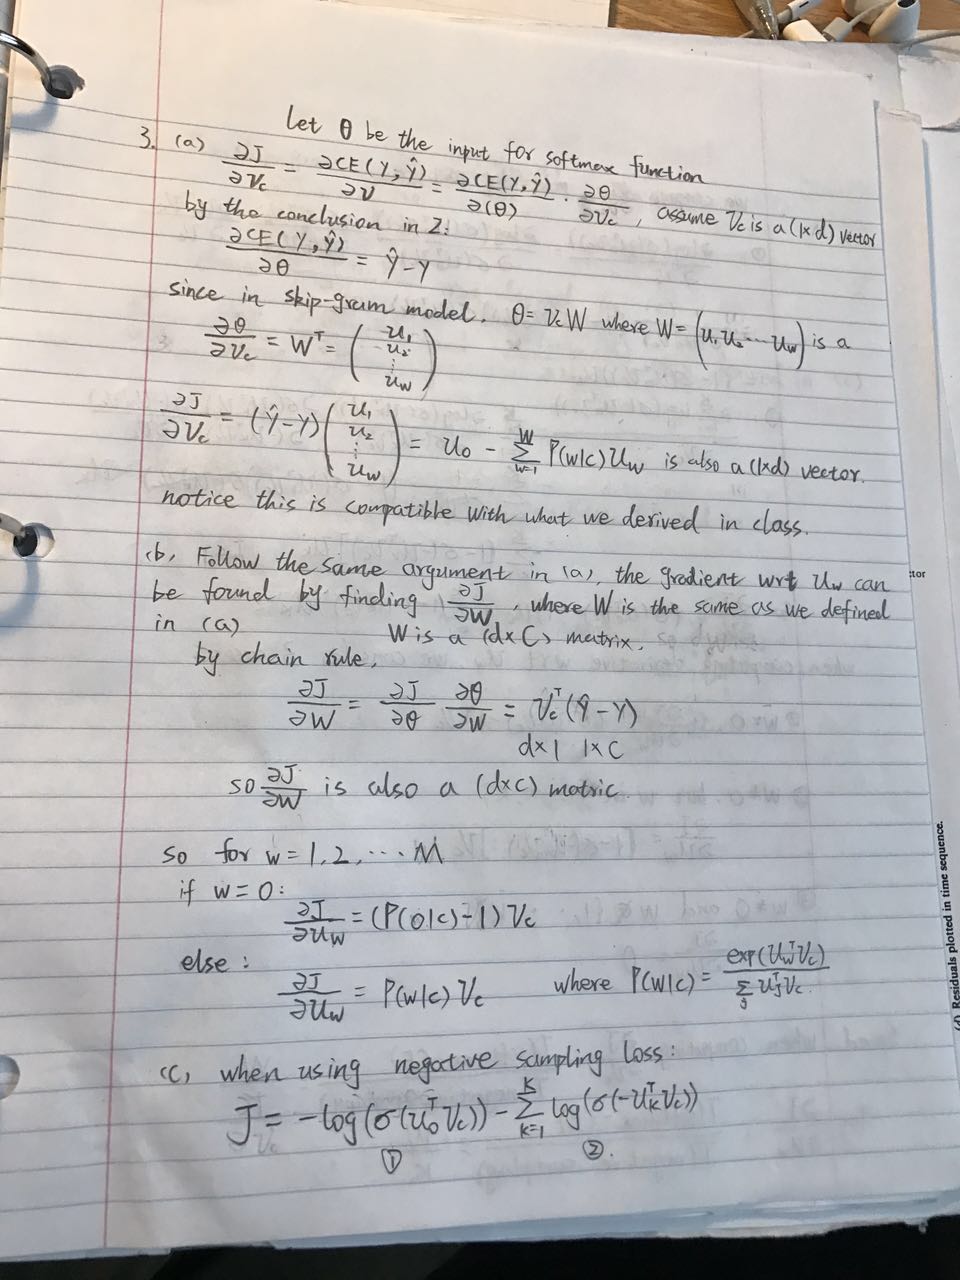 Let θ be the input for softmax function
3. (a) ∂J/∂Vc = ∂CE(Y,Ŷ)/∂V = ∂CE(Y,Ŷ)/∂(θ) · ∂θ/∂Vc , assume Vc is a (1×d) vector
by the conclusion in 2:
∂CE(Y,Ŷ)/∂θ = Ŷ-Y
since in skip-gram model. θ = VcW where W = (u₁ u₂ ... u_W) is a
∂θ/∂Vc = Wᵀ = (u₁ u₂ ⋮ u_W)
∂J/∂Vc = (Ŷ-Y)(u₁ u₂ ⋮ u_W) = u₀ - Σ_{w=1}^{W} P(w|c)u_w is also a (1×d) vector.
notice this is compatible with what we derived in class.
(b) Follow the same argument in (a), the gradient wrt u_w can
be found by finding ∂J/∂W , where W is the same as we defined
in (a) W is a (d×C) matrix.
by chain rule,
∂J/∂W = ∂J/∂θ ∂θ/∂W = Vcᵀ(Ŷ-Y)
d×1 1×C
so ∂J/∂W is also a (d×C) matric.
so for w = 1,2, ... W
if w = 0:
∂J/∂u_w = (P(0|c)-1)Vc
else:
∂J/∂u_w = P(w|c)Vc where P(w|c) = exp(u_wᵀVc)/Σ_j u_jᵀVc
(c) when using negative sampling loss:
J = -log(σ(u₀ᵀVc)) - Σ_{k=1}^{K} log(σ(-u_kᵀVc))
① ②.
tor
(d) Residuals plotted in time sequence.